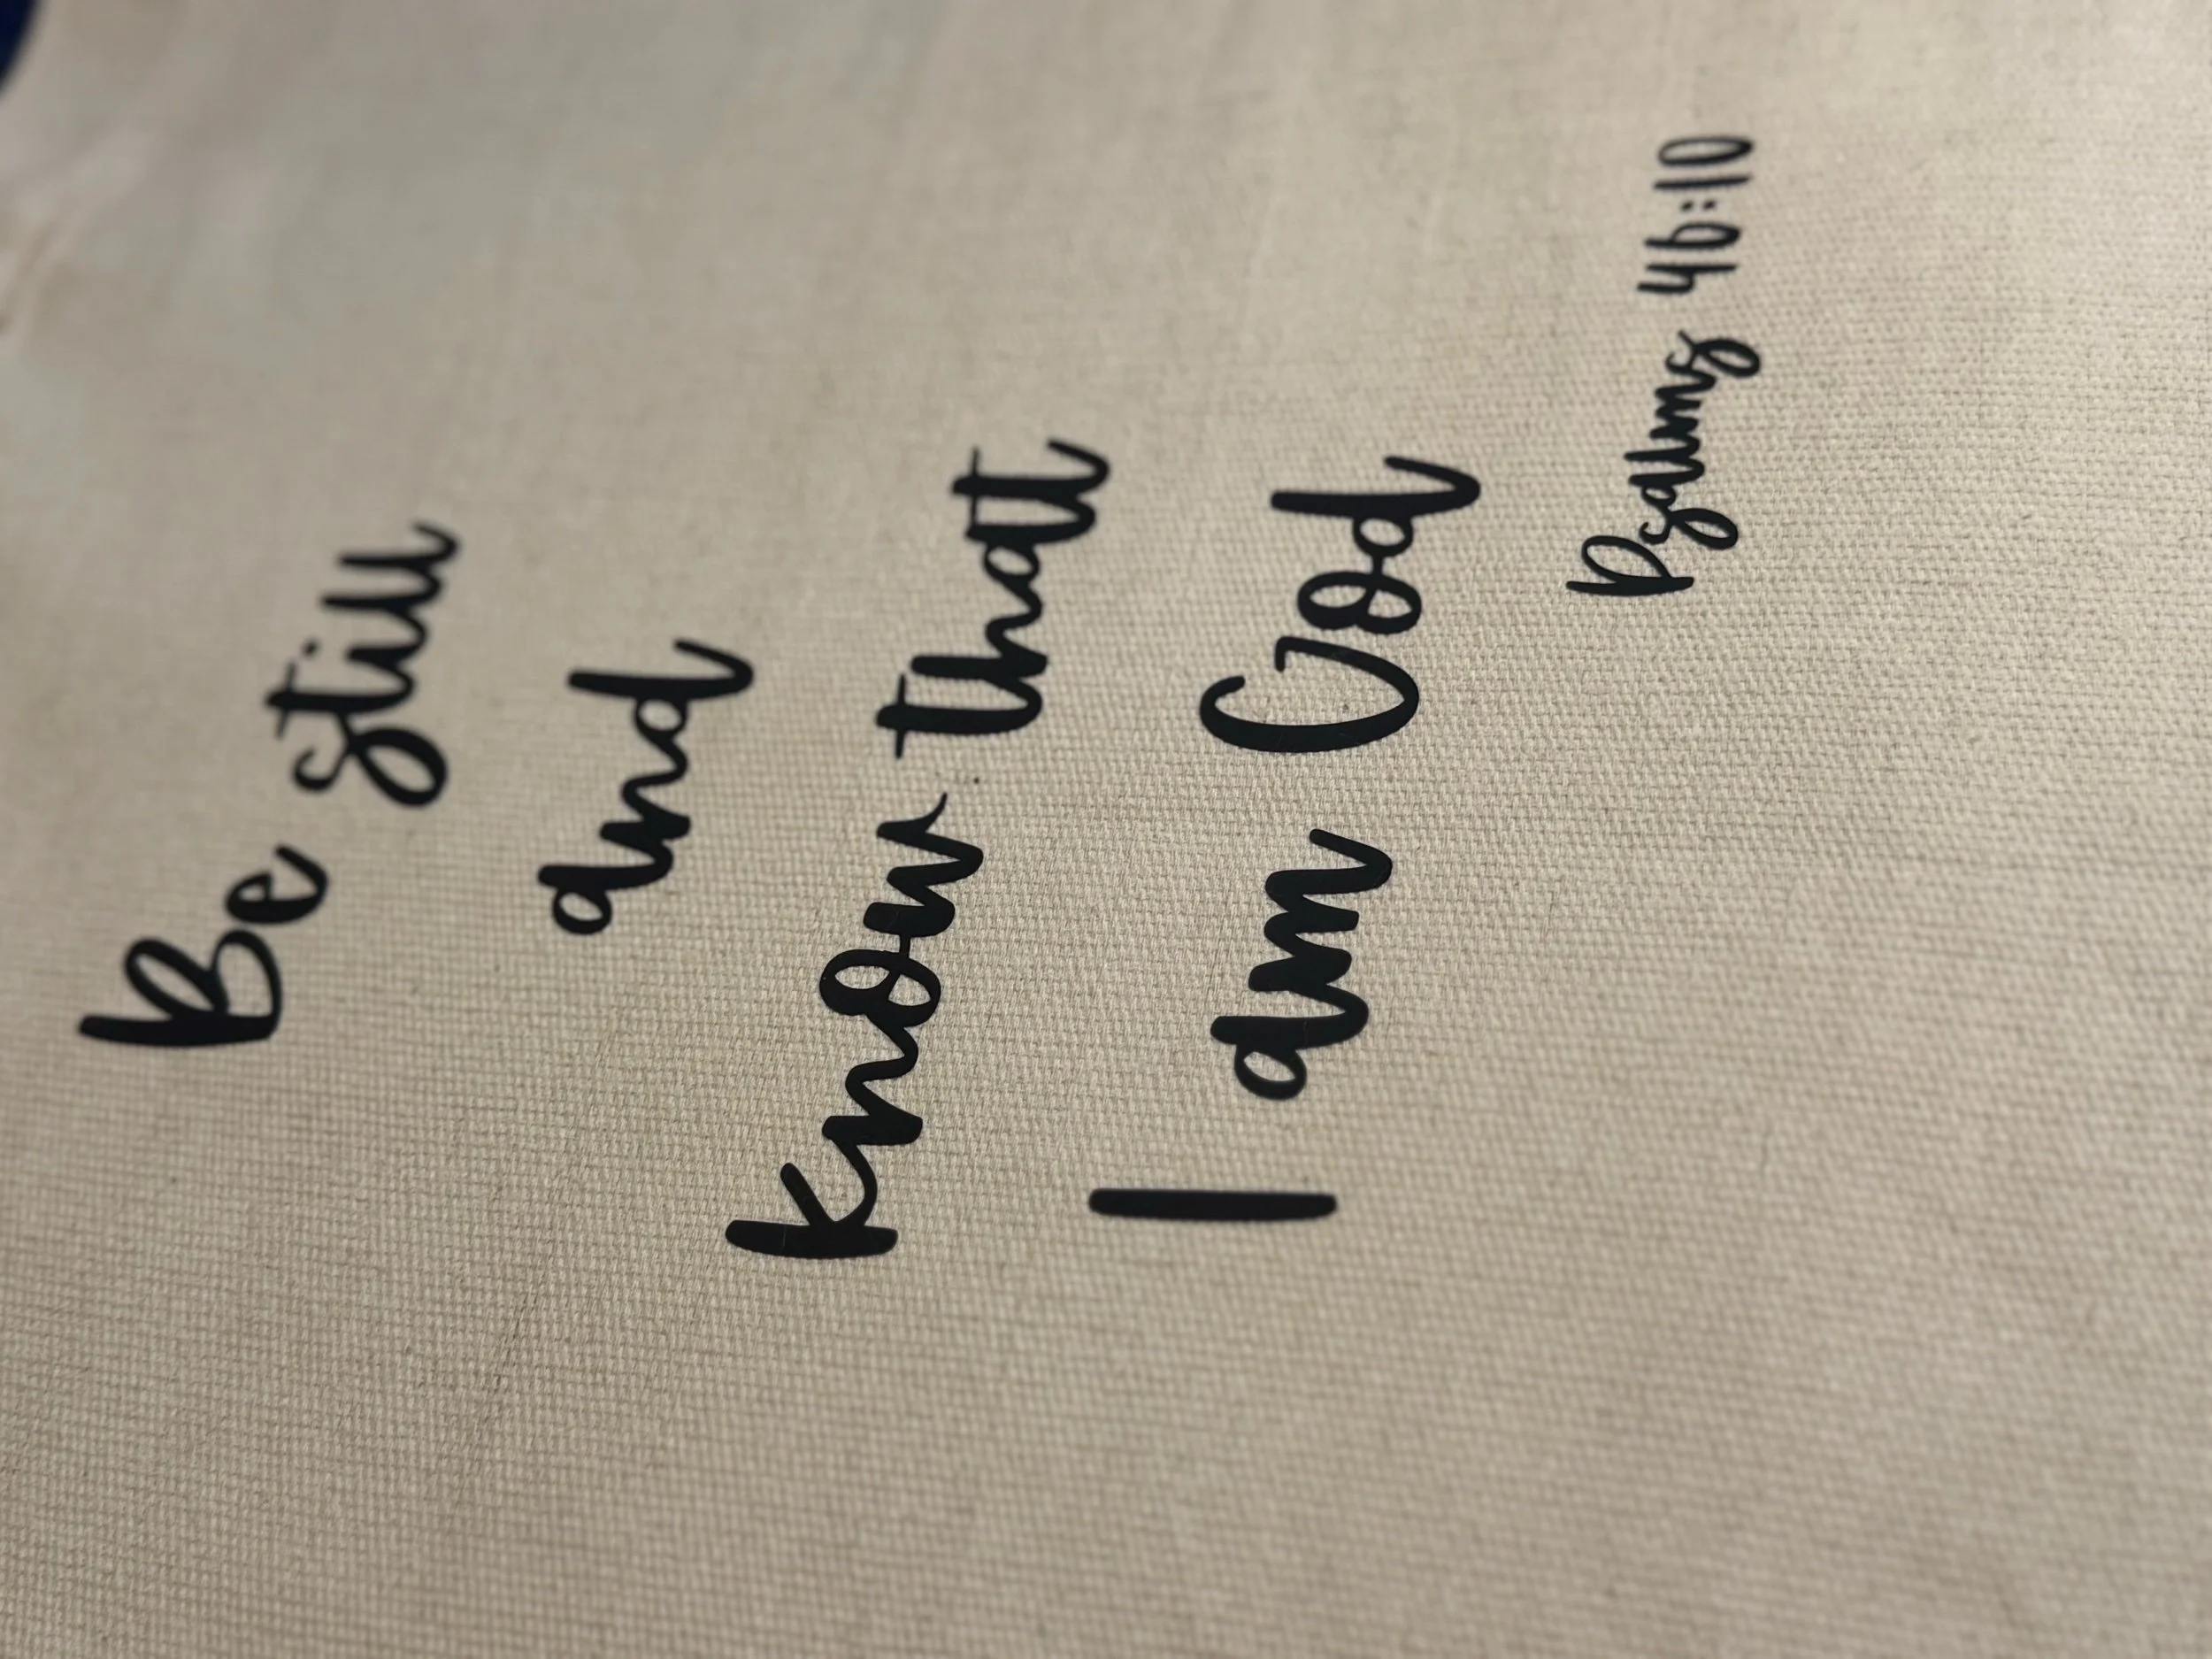 Be still
and
know that
I am God
Psalms 46:10